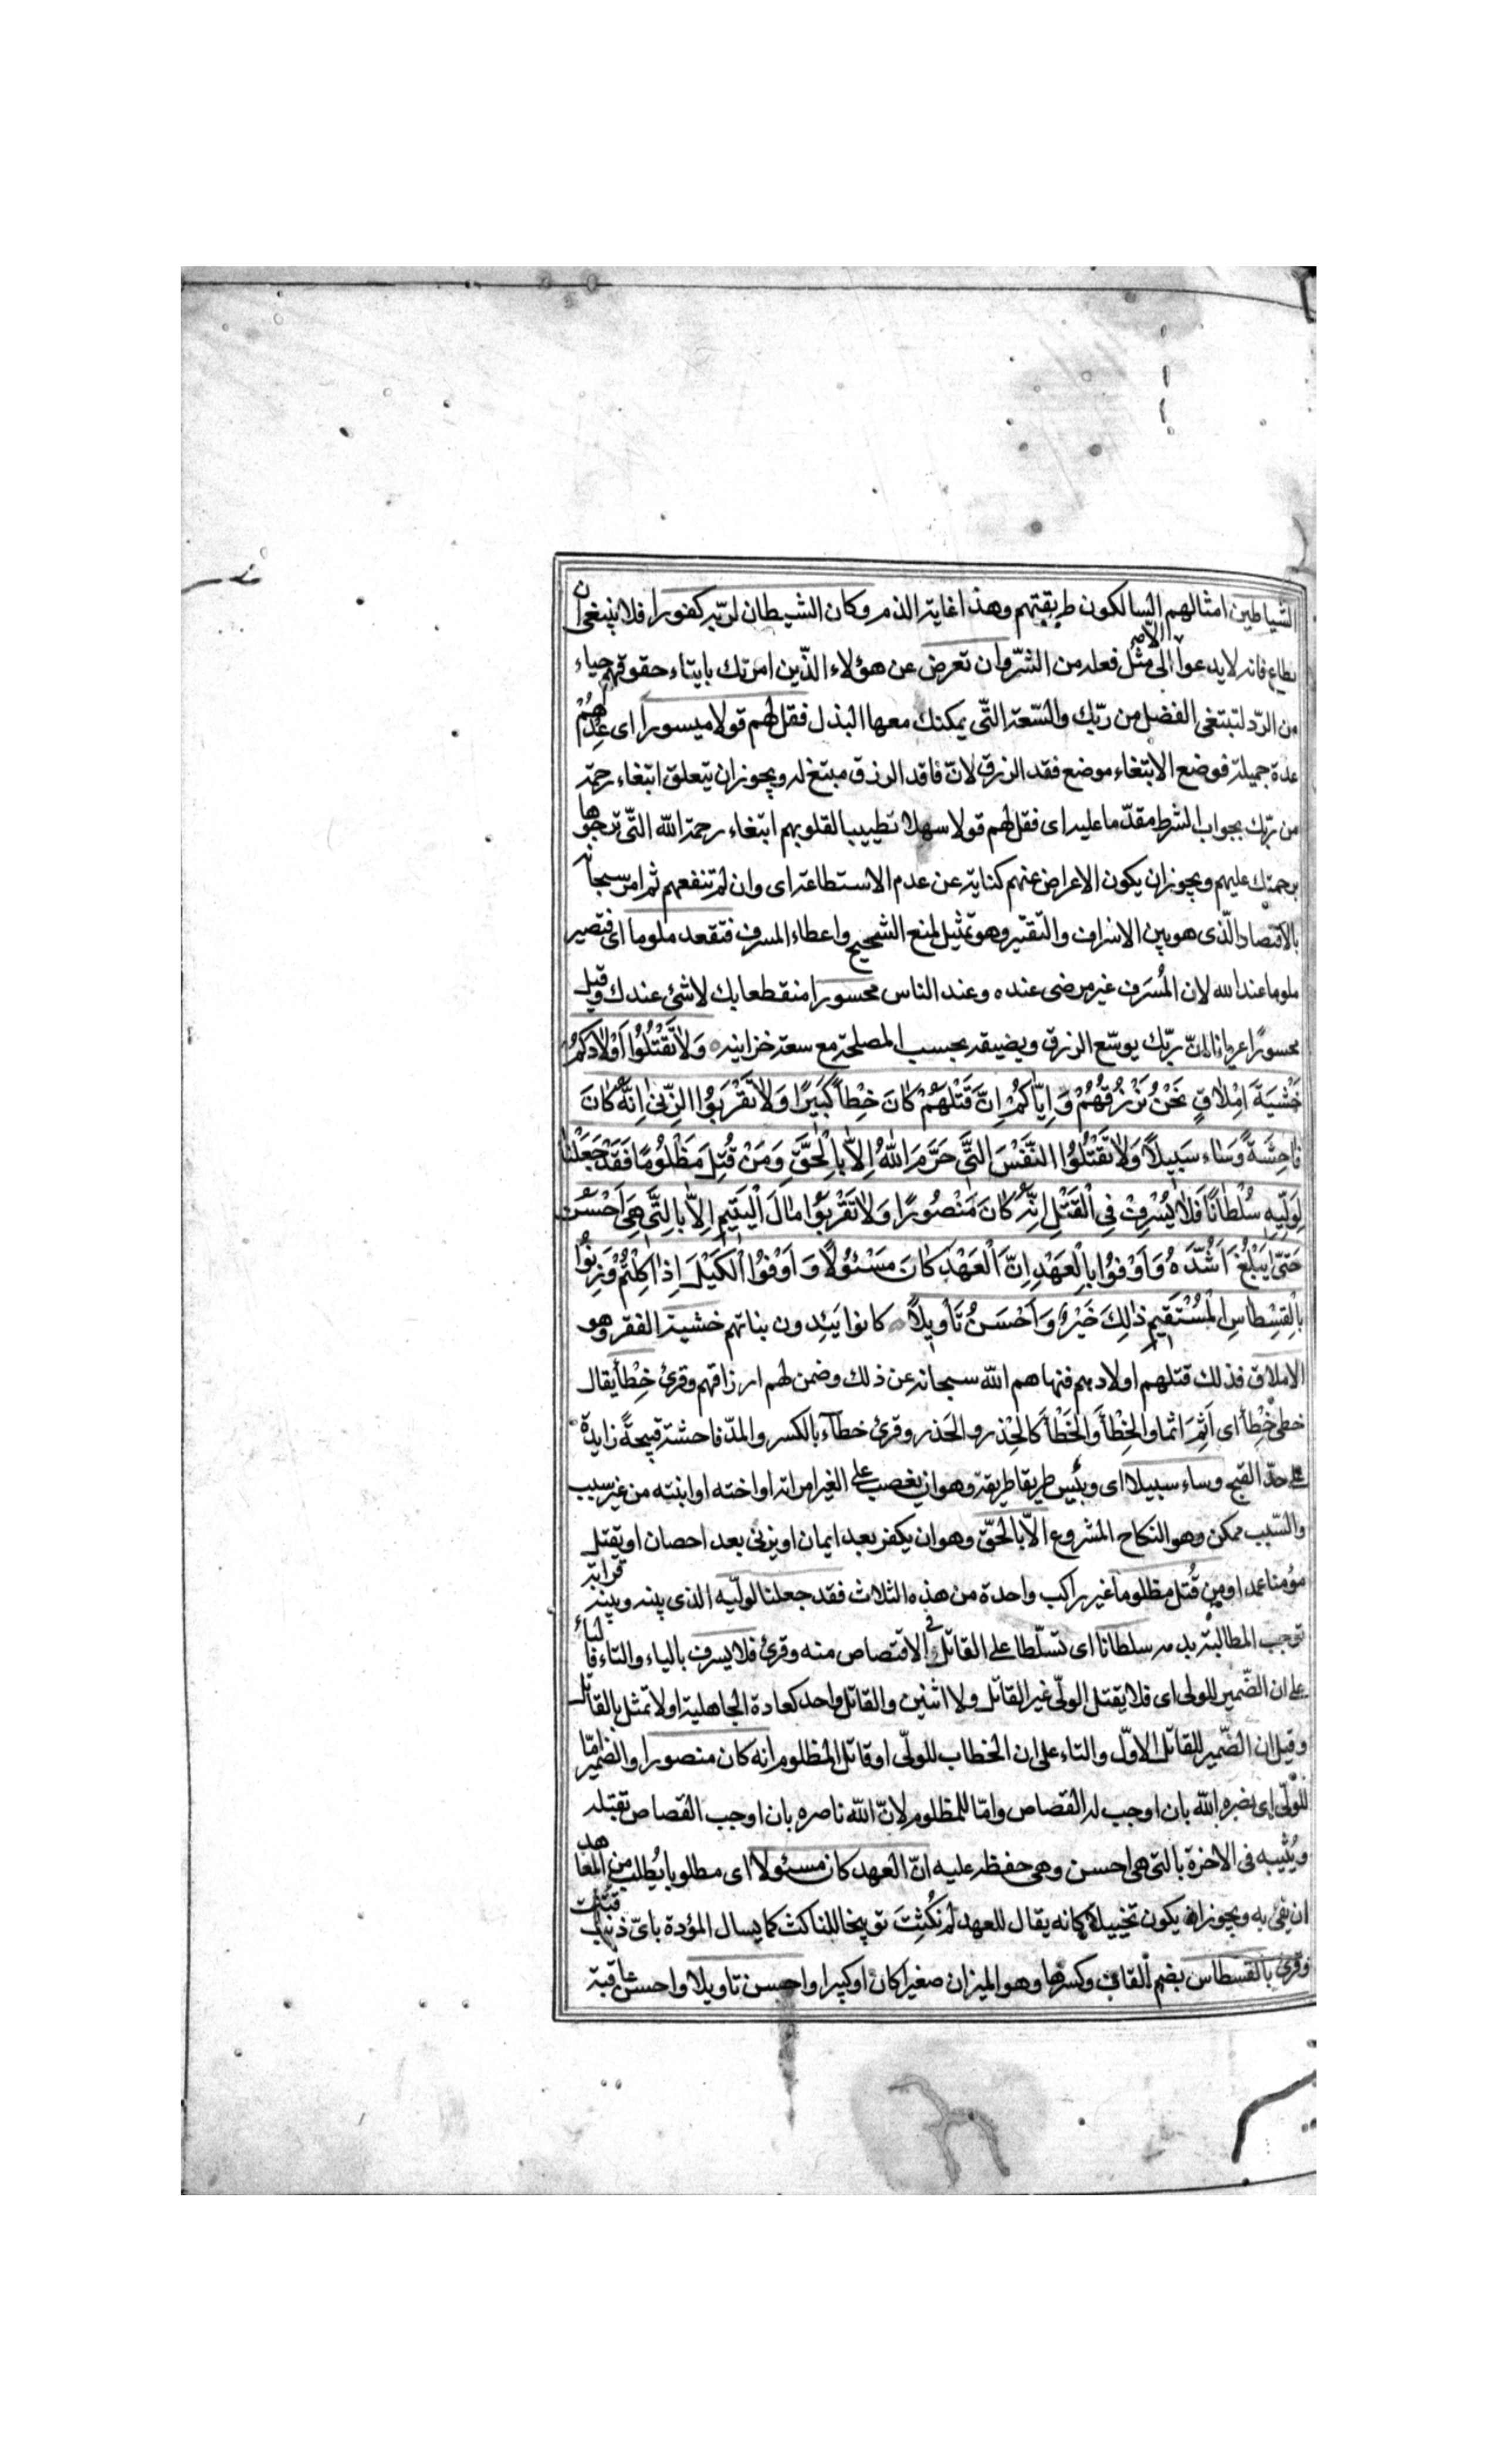 الشياطين امثالهم السالكون طريقتهم وهذا غاية الذم وكان الشيطان لربّه كفورا فلا ينبغى ان
يطاع فانه لا يدعوا الّا الى مثل فعله من الشرّ وان تعرض عن هؤلاء الذّين امرتك بايتاء حقوقهم حياء
من الردّ لتبتغى الفضل من ربّك والسّعة التّى يمكنك معها البذل فقل لهم قولا ميسورا اى عِدْهُمْ
عدة جميلة فوضع الابتغاء موضع فقد الرزق لانّ فاقد الرزق مبتغ له ويجوز ان يتعلق ابتغاء رحمة
من ربّك بجواب الشرط مقدّما عليه اى فقل لهم قولا سهلا تطييبا لقلوبهم ابتغاء رحمة الله التّى ترجوها
برحمتك عليهم ويجوز ان يكون الاعراض عنهم كناية عن عدم الاستطاعة اى وان لم تنفعهم ثم امر سبحانه
بالاقتصاد الّذى هو بين الاسراف والتقتير وهو تمثيل لمنع الشحيح واعطاء المسرف فتقعد ملوما اى فتصير
ملوما عند الله لان المُسرف غير مرضى عنده وعند الناس محسورا منقطعا بك لا شئ عندك وقيل
محسورًا عريانا انّ ربّك يوسّع الرزق ويضيقه بحسب المصلحة مع سعة خزاينه وَلَا تَقْتُلُوا اَوْلَادَكُمْ
خَشْيَةَ اِمْلَاقٍ نَحْنُ نَرْزُقُهُمْ وَاِيَّاكُمْ اِنَّ قَتْلَهُمْ كَانَ خِطْأً كَبِيرًا وَلَا تَقْرَبُوا الزِّنٰى اِنَّهُ كَانَ
فَاحِشَةً وَسَاءَ سَبِيلًا وَلَا تَقْتُلُوا النَّفْسَ الَّتِى حَرَّمَ اللهُ اِلَّا بِالْحَقِّ وَمَنْ قُتِلَ مَظْلُومًا فَقَدْ جَعَلْنَا
لِوَلِيِّهِ سُلْطَانًا فَلَا يُسْرِفْ فِى الْقَتْلِ اِنَّهُ كَانَ مَنْصُورًا وَلَا تَقْرَبُوا مَالَ الْيَتِيمِ اِلَّا بِالَّتِى هِىَ اَحْسَنُ
حَتّٰى يَبْلُغَ اَشُدَّهُ وَاَوْفُوا بِالْعَهْدِ اِنَّ الْعَهْدَ كَانَ مَسْئُولًا وَاَوْفُوا الْكَيْلَ اِذَا كِلْتُمْ وَزِنُوا
بِالْقِسْطَاسِ الْمُسْتَقِيمِ ذٰلِكَ خَيْرٌ وَاَحْسَنُ تَأْوِيلًا كانوا يَئِدون بناتهم خشية الفقر وهو
الاملاق فذلك قتلهم اولادهم فنهاهم الله سبحانه عن ذلك وضمن لهم ارزاقهم وقرئ خِطْأ يقال
خطئ خِطْأ اى اَثِمَ اثما والخِطْأ والخَطَأ كالحِذر والحَذر وقرئ خطآء بالكسر والمدّ فاحشة قبيحةً زايدة
على حدّ القبح وساء سبيلا اى وبئس طريقا طريقه وهو ان يغصب على الغير امراته او اخته او ابنته من غير سبب
والسّبب ممكن وهو النكاح المشروع الّا بالحقّ وهو ان يكفر بعد ايمان او يزنى بعد احصان او يقتل
مؤمنا عمدا ومن قُتل مظلوما غير راكب واحدة من هذه الثلاث فقد جعلنا لوليّه الذى بينه وبينه قرابة
توجب المطالبة بدمه سلطانا اى تسلّطا على القاتل فى الاقتصاص منه وقرئ فلا يسرف بالياء والتاء فالياء
على ان الضّمير للولى اى فلا يقتل الولّى غير القاتل ولا اثنين والقاتل واحد كعادة الجاهلية او لا تمثل بالقاتل
وقيل ان الضّمير للقاتل الاوّل والتاء على ان الخطاب للولّى او قاتل المظلوم انه كان منصورا والضمير امّا
للولّى اى نصره الله بان اوجب له القصاص وامّا للمظلوم لانّ الله ناصره بان اوجب القصاص بقتله
ويُثيبه فى الاخرة بالتى هى احسن وهى حفظه عليه انّ العهد كان مسئولا اى مطلوبا يُطلب من المعاهد
ان يفئ به ويجوز ان يكون تخييلا كانه يقال للعهد لم نُكِثتَ توبيخا للناكث كما يسال المؤدة باىّ ذنب قُتِلَت
وقرئ بالقسطاس بضم القاف وكسرها وهو الميزان صغيرا كان او كبيرا واحسن تاويلا واحسن عاقبة